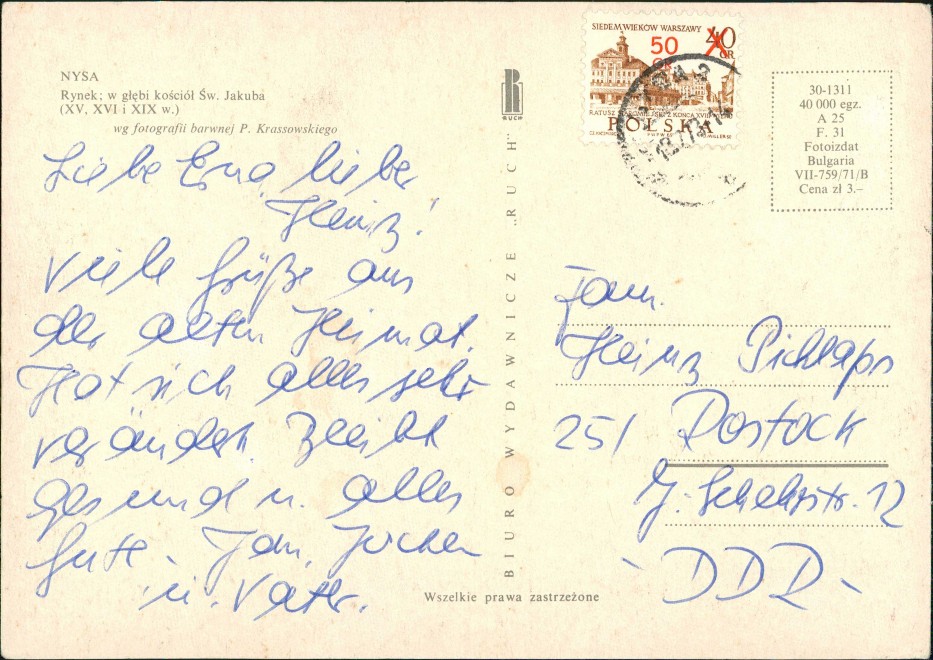 NYSA
Rynek; w głębi kościół Św. Jakuba
(XV, XVI i XIX w.)
wg fotografii barwnej P. Krassowskiego
Liebe Erna, lieber
Heinz!
Viele Grüße aus
der alten Heimat.
Hat sich alles sehr
verändert. Bleibt
gesund u. alles
Gute. Jochen
u. Vater.
RUCH
BIURO WYDAWNICZE „RUCH"
Wszelkie prawa zastrzeżone
SIEDEM WIEKÓW WARSZAWY
40 GR
50 GR
POLSKA
30-1311
40 000 egz.
A 25
F. 31
Fotoizdat
Bulgaria
VII-759/71/B
Cena zł 3.–
Fam.
Heinz
251 Rostock
12
- DDR -